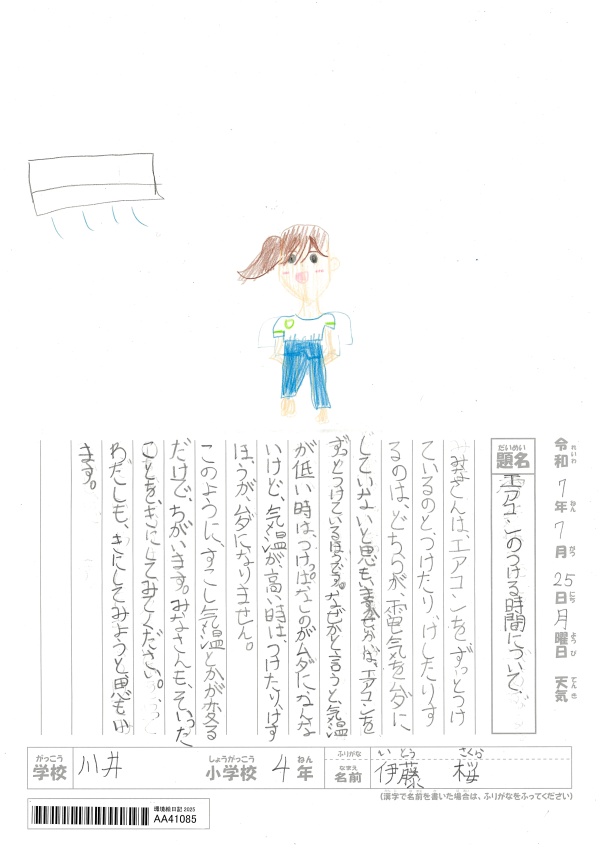 令和7年7月25日月曜日 天気
れいわ ねん がつ にち ようび てんき
だいめい
題名 エアコンのつける時間について、
みなさんは、エアコンをずっとつけ
ているのと、つけたり、けしたりす
るのは、どちらが、電気をムダに
していないと思もいますか。
ずっとつけているほうがう。なぜかと言うと、気温
が低い時は、つけっぱなしのがムダになんな
いけど、気温が高い時は、つけたり、けす
ほ、うが、ムダになりません。
このように、すこし気温とかが変る
だけで、ちがいます。みなさんも、そいった
ことを、きにしてみてください。
わたしも、きにしてみようと思もい
ます。
がっこう しょうがっこう ねん
学校 川井 小学校 4年
ふりがな いとう さくら
なまえ
名前 伊藤 桜
(漢字で名前を書いた場合は、ふりがなをふってください)
環境絵日記 2025
AA41085